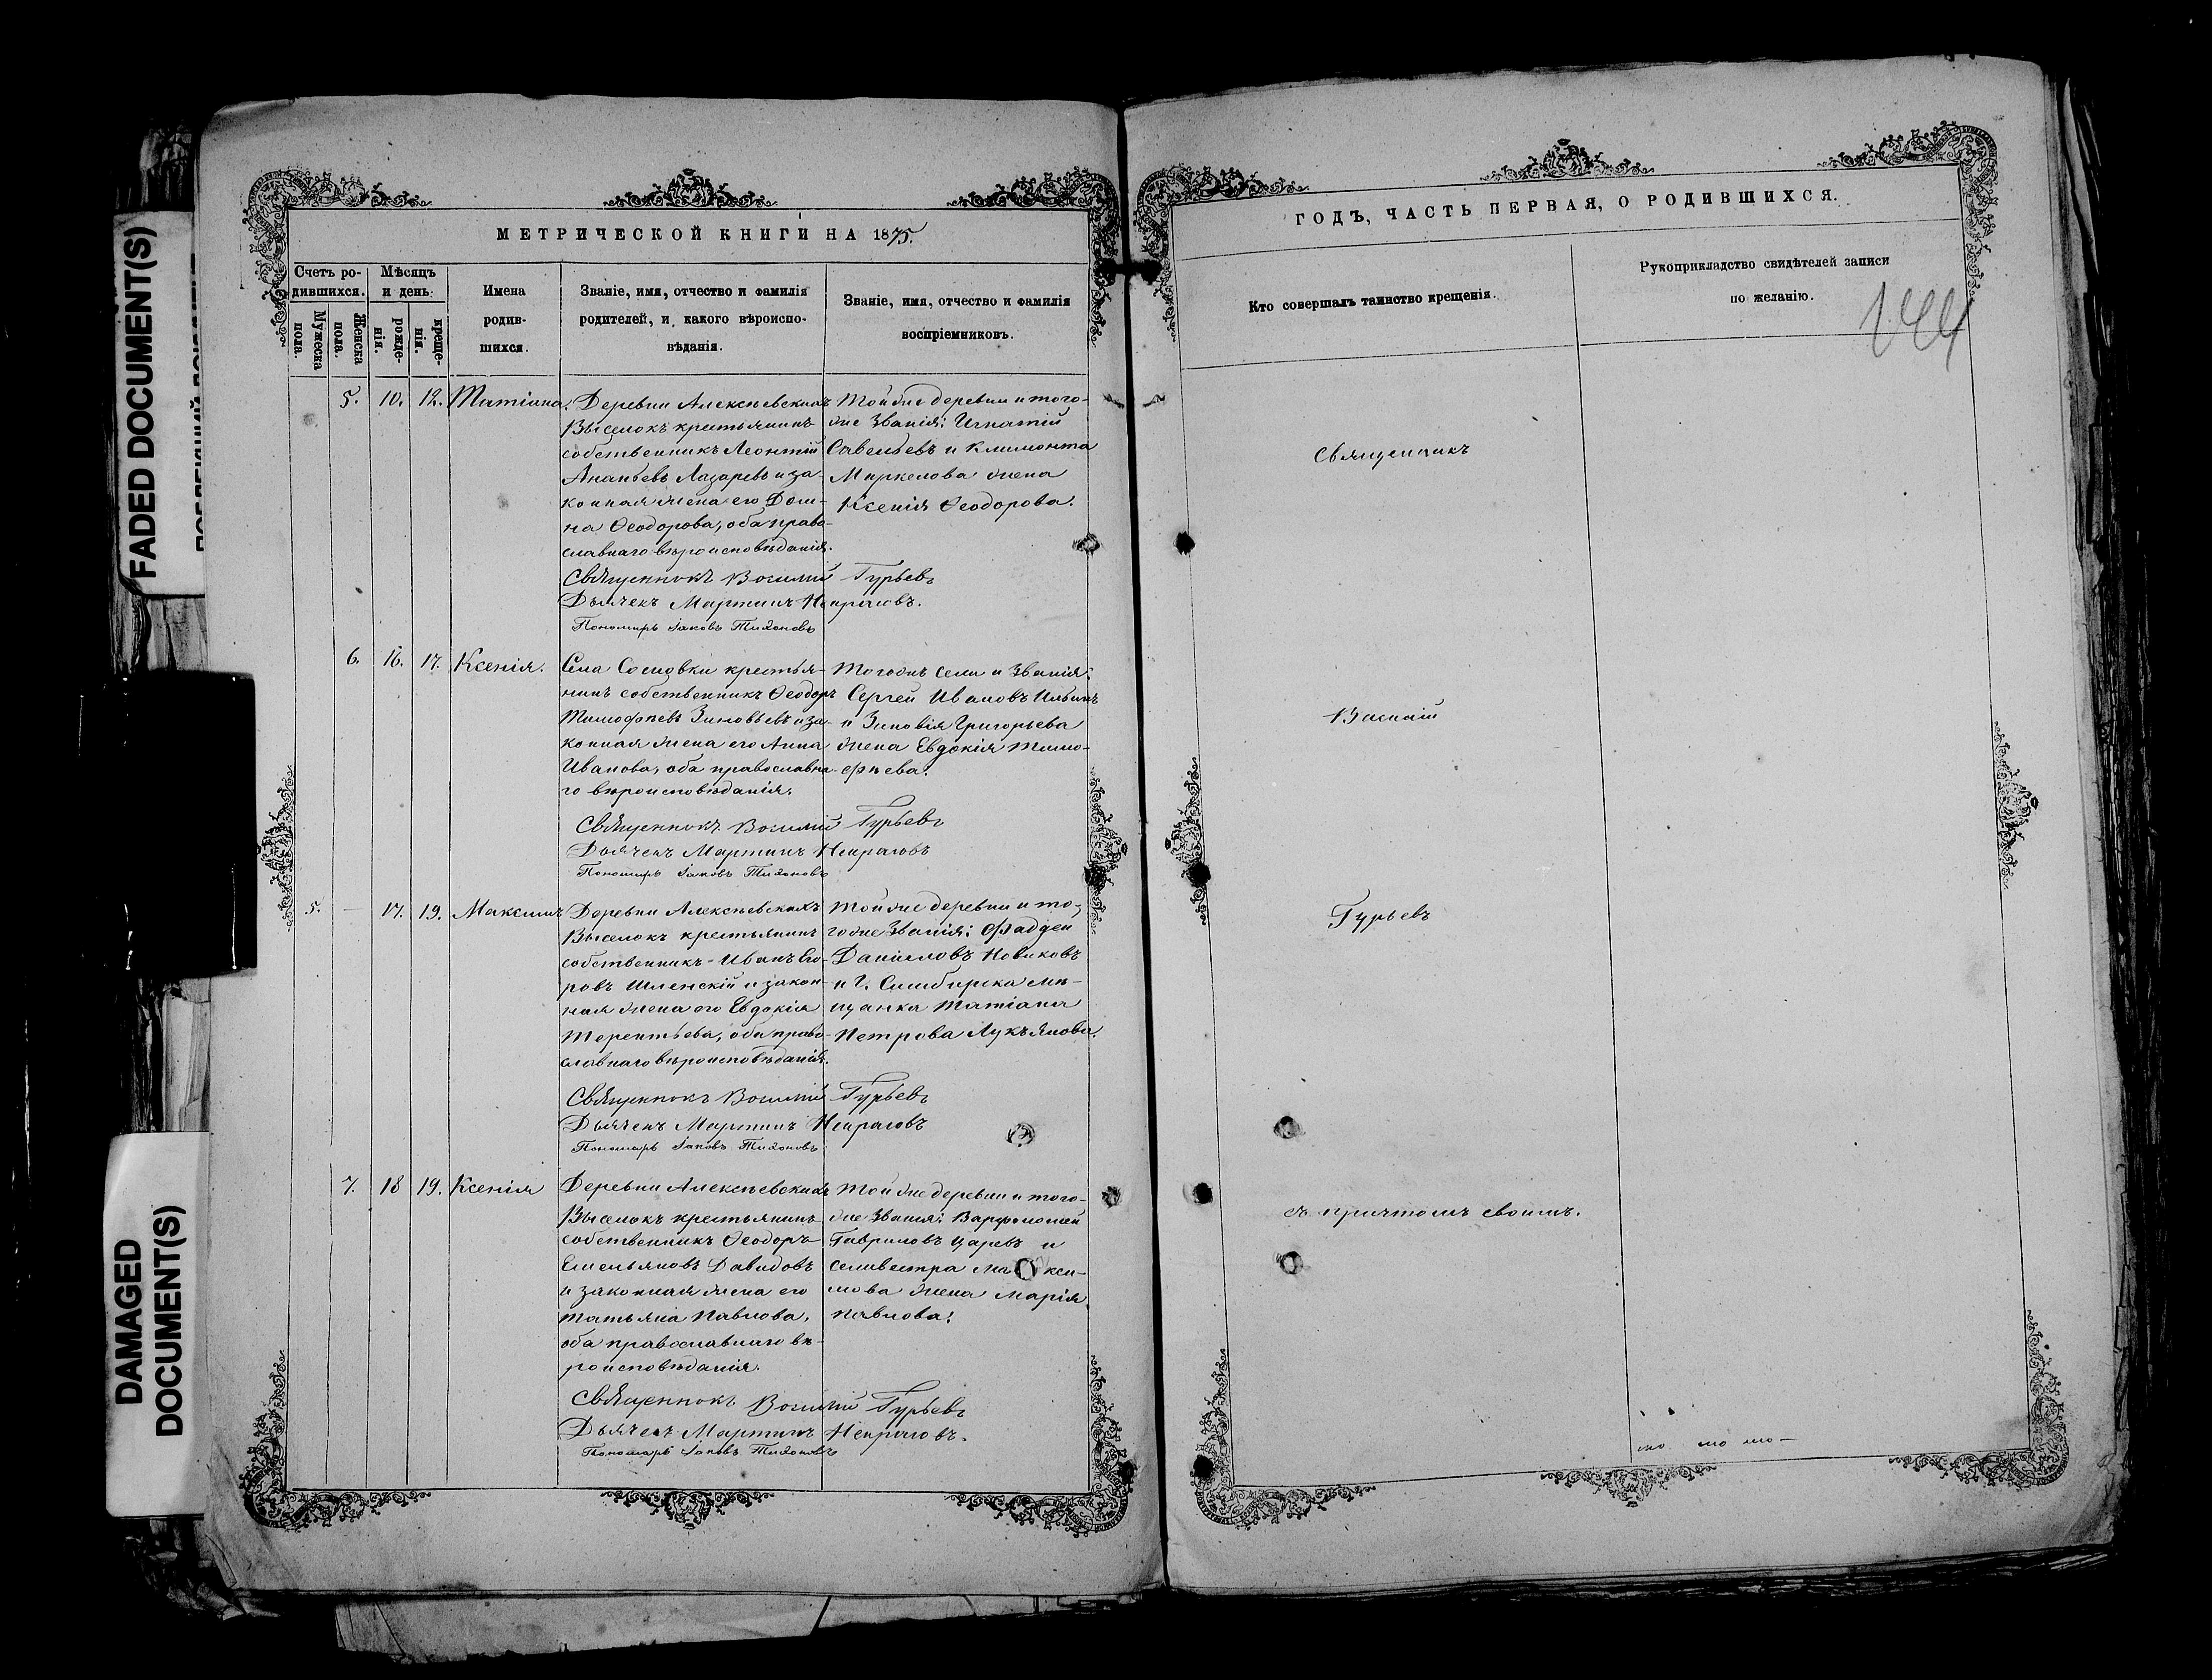 FADED DOCUMENT(S)
DAMAGED
DOCUMENT(S)
МЕТРИЧЕСКОЙ КНИГИ НА 1875.
Счетъ ро-
дившихся.
Мѣсяцъ
и день.
Мужеска
пола.
Женска
пола.
рожде-
нія.
креще-
нія.
Имена
родив-
шихся.
Званіе, имя, отчество и фамилія
родителей, и какого вѣроиспо-
вѣданія.
Званіе, имя, отчество и фамилія
воспріемниковъ.
5. 10. 12. Татіана.
Деревни Алексѣевскихъ
Выселокъ крестьянинъ
собственникъ Леонтій
Ананьевъ Лазаревъ и за-
конная жена его Дом-
на Ѳеодорова, оба право-
славнаго вѣроисповѣданія.
Той же деревни и того-
же званія: Игнатій
Савельевъ и Климонта
Маркелова жена
Ксенія Ѳеодорова.
Священникъ Василій Гурьевъ
Дьячекъ Мартинъ Некрасовъ.
Пономарь Іаковъ Тихоновъ
6. 16. 17. Ксенія.
Села Сосновки крестья-
нинъ собственникъ Ѳеодоръ
Тимофѣевъ Зиновьевъ и за-
конная жена его Анна
Иванова, оба православна-
го вѣроисповѣданія.
Того же села и званія:
Сергей Ивановъ Ильинъ
и Зиновія Григорьева
жена Евдокія Тимо-
фѣева.
Священникъ Василій Гурьевъ
Дьячекъ Мартинъ Некрасовъ
Пономарь Іаковъ Тихоновъ
5. — 17. 19. Максимъ
Деревни Алексѣевскихъ
Выселокъ крестьянинъ
собственникъ Иванъ Его-
ровъ Шленскій и закон-
ная жена его Евдокія
Терентьева, оба право-
славнаго вѣроисповѣданія.
Той же деревни и то-
го же званія: Фаддей
Даниловъ Новиковъ
и г. Симбирска мѣ-
щанка Татіана
Петрова Лукъянова.
Священникъ Василій Гурьевъ
Дьячекъ Мартинъ Некрасовъ
Пономарь Іаковъ Тихоновъ
7. 18 19. Ксенія
Деревни Алексѣевскихъ
Выселокъ крестьянинъ
собственникъ Ѳеодоръ
Емельяновъ Давидовъ
и законная жена его
Татьяна Павлова,
оба православнаго вѣ-
роисповѣданія.
Той же деревни и того-
же званія: Варфоломей
Гавриловъ Царевъ и
Селивестра Макси-
мова жена Марія
Павлова.
Священникъ Василій Гурьевъ
Дьячекъ Мартинъ Некрасовъ.
Пономарь Іаковъ Тихоновъ
ГОДЪ, ЧАСТЬ ПЕРВАЯ, О РОДИВШИХСЯ.
Кто совершалъ таинство крещенія.
Рукоприкладство свидѣтелей записи
по желанію.
144
Священникъ
Василій
Гурьевъ
съ причтомъ своимъ.